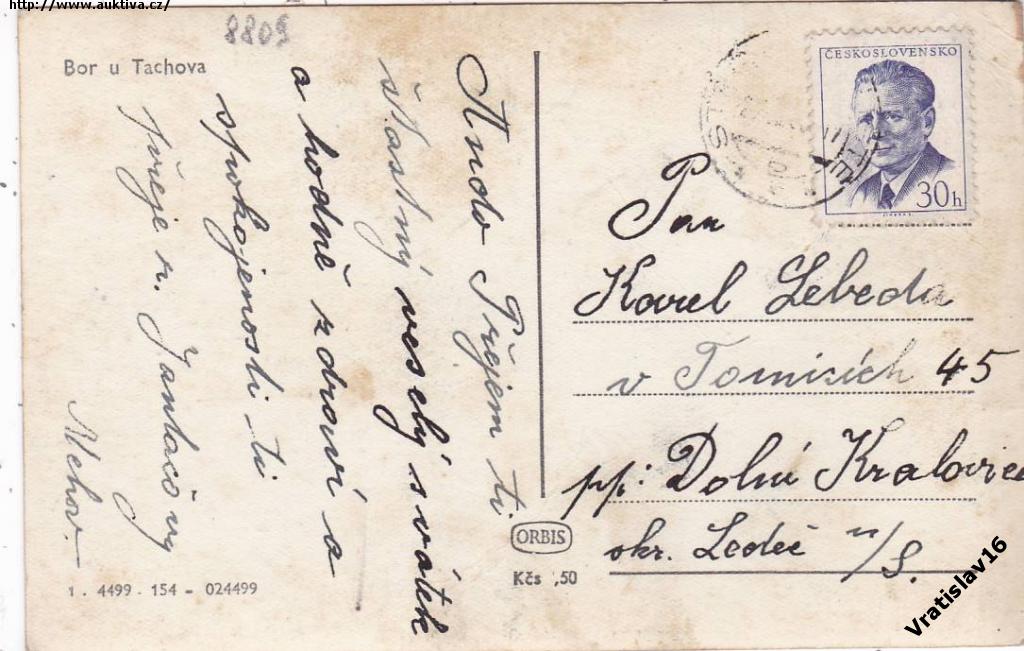 http://www.auktiva.cz/
8809
Bor u Tachova
ČESKOSLOVENSKO
30h
Ando Přejem ti
šťastný veselý svátek
a hodně zdraví a
spokojenosti ti
přeje r.
Pan
Karel Lebeda
v Tomicích 45
pp: Dolní Kralovice
okr. Ledeč n/S.
ORBIS
Kčs ,50
1 . 4499 . 154 - 024499
Vratislav16